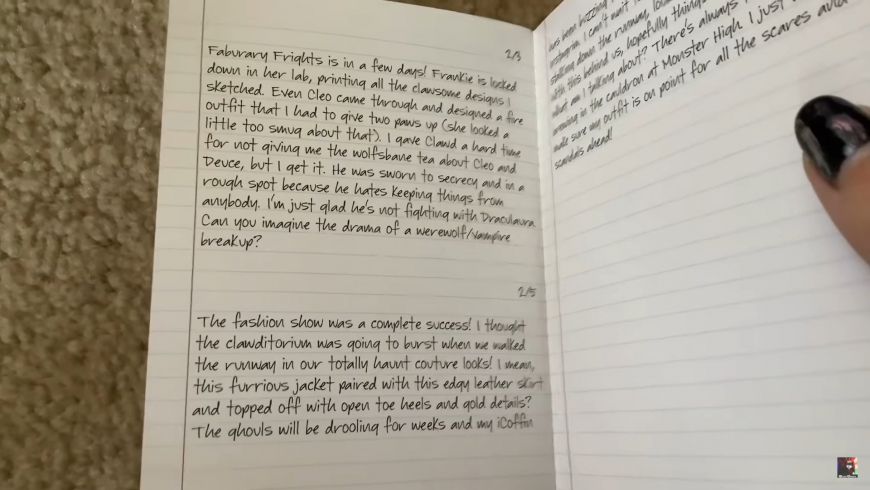 2/3
Faburary Frights is in a few days! Frankie is locked
down in her lab, printing all the clawsome designs I
sketched. Even Cleo came through and designed a fire
outfit that I had to give two paws up (she looked a
little too smug about that). I gave Clawd a hard time
for not giving me the wolfsbane tea about Cleo and
Deuce, but I get it. He was sworn to secrecy and in a
rough spot because he hates keeping things from
anybody. I'm just glad he's not fighting with Draculaura.
Can you imagine the drama of a werewolf/vampire
breakup?
2/5
The fashion show was a complete success! I thought
the clawditorium was going to burst when we walked
the runway in our totally haunt couture looks! I mean,
this furrious jacket paired with this edgy leather skirt
and topped off with open toe heels and gold details?
The ghouls will be drooling for weeks and my iCoffin
has been buzzing
I can't wait
down the runway,
with this behind us, hopefully things
what am I talking about? There's always
brewing in the cauldron at Monster High. I just
make sure my outfit is on point for all the scares and
scandals ahead!